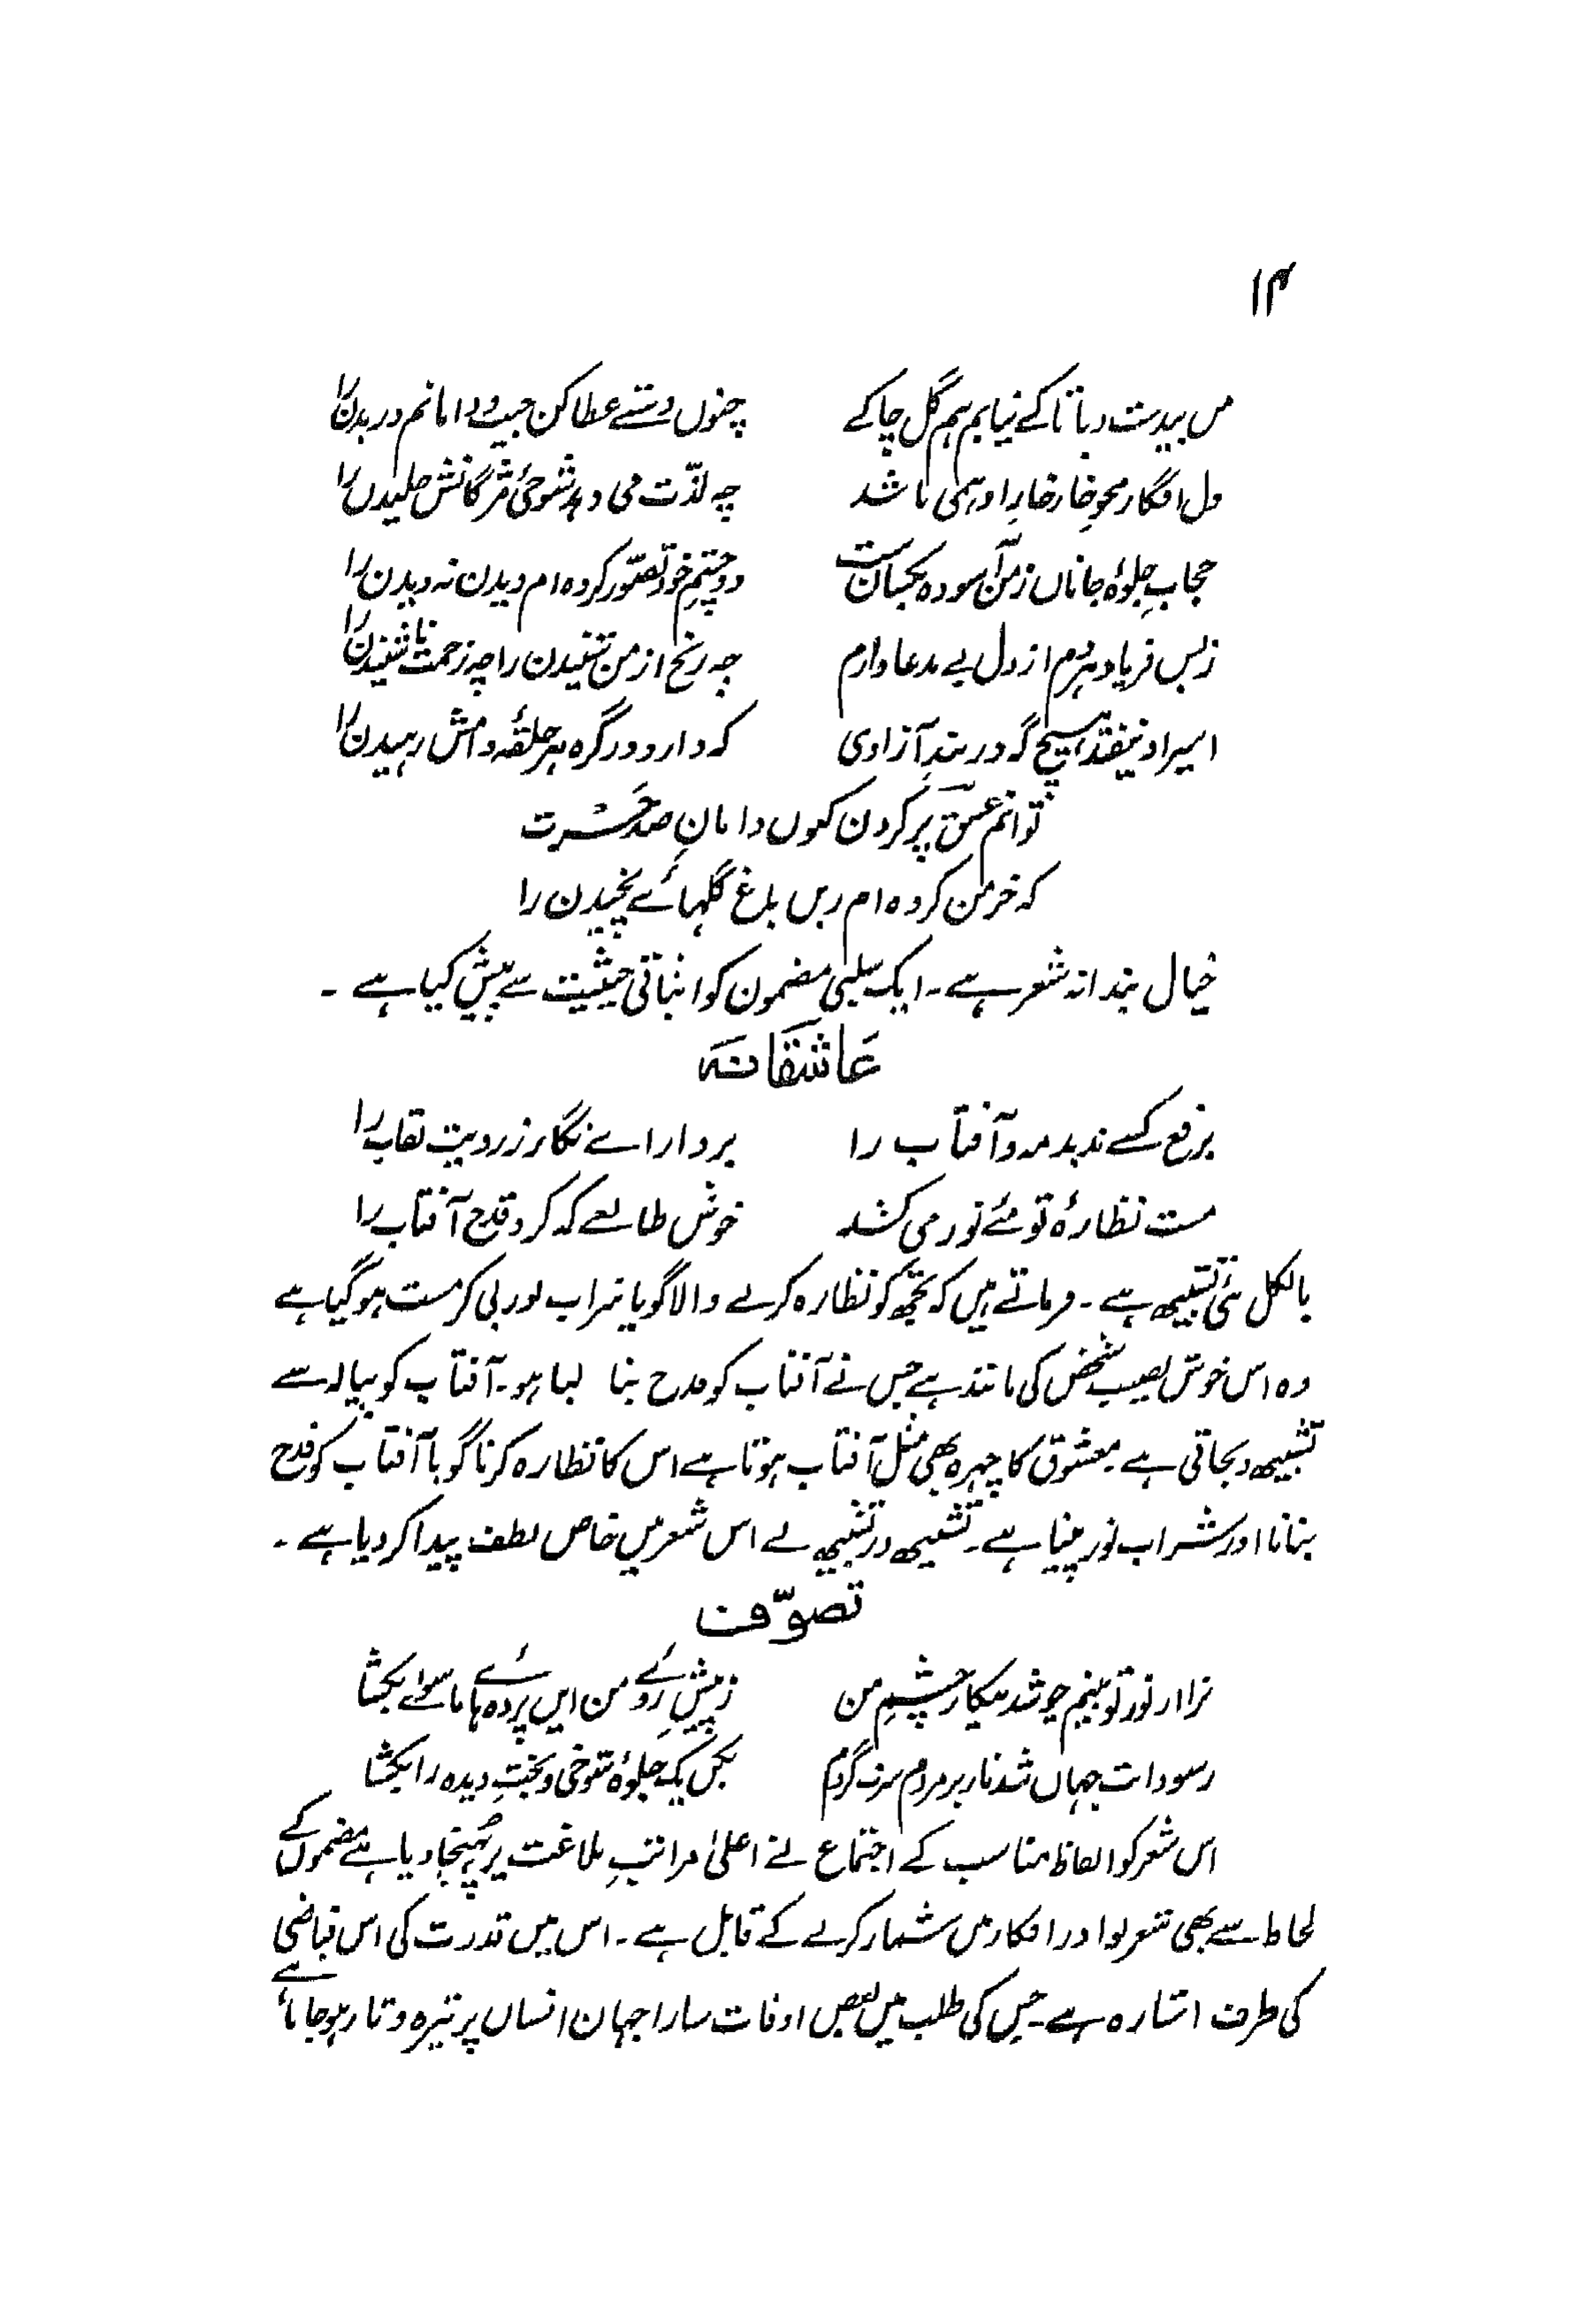 ۱۴
من بیدست و پا تا کے نیابم ہم گل چاکے جنوں دستے عطا کن جیب و دامانم دریدن را
دل افگار محو خار خارِ او ہمی باشد چہ لذّت می دہد شوخیٔ مژگانش خلیدن را
حجابِ جلوۂ جاناں ز من آسودہ یکسان ست دو چشمِ خود تصوّر کردہ ام دیدن نہ دیدن را
زبس فریاد ہر دم از دل بے مدعا دارم چہ رنج از من شنیدن را چہ زحمت ناشنیدن را
اسیر او نیفتد ہیچ گہ در بندِ آزادی کہ دارد در گرہ ہر حلقۂ دامش رہیدن را
توانم عشق پر کردن کنوں دامانِ صد حسرت
کہ خرمن کردہ ام زیں باغ گلہائے نچیدن را
خیال بندانہ شعر ہے۔ ایک سلبی مضمون کو اثباتی حیثیت سے پیش کیا ہے ۔
عاشقانہ
برقع کسے ندید مہ و آفتاب را بردار اے نگار ز رویت نقاب را
مست نظارۂ تو مئے نور می کشد خوش طالعے کہ کرد قدح آفتاب را
بالکل نئی تشبیھ ہے۔ فرماتے ہیں کہ تجھ کو نظارہ کرنے والا گویا شراب نور پی کر مست ہوگیا ہے
وہ اس خوش نصیب شخص کی مانند ہے جس نے آفتاب کو قدح بنا لیا ہو۔ آفتاب کو پیالہ سے
تشبیھ دیجاتی ہے۔ معشوق کا چہرہ بھی مثل آفتاب ہوتا ہے اس کا نظارہ کرنا گویا آفتاب کو قدح
بنانا اور شراب نور پینا ہے۔ تشبیھ در تشبیھ نے اس شعر میں خاص لطف پیدا کر دیا ہے ۔
تصوّف
ترا از نور تو بینم چو شد یکبار چشمِ من ز پیشِ روئے من ایں پردہ ہائے ماسوائے بکشا
ز سودایت جہاں شد تار بر مردم سرت گردم بکن یک جلوۂ شوخی و بختِ دیدہ را بکشا
اس شعر کو الفاظ مناسب کے اجتماع نے اعلیٰ مراتبِ بلاغت پر پہنچا دیا ہے مضمون کے
لحاظ سے بھی شعر نوادر افکار میں شمار کرنے کے قابل ہے۔ اس میں قدرت کی اس فیاضی
کی طرف اشارہ ہے۔ جس کی طلب میں بعض اوقات سارا جہان انسان پر تیرہ و تار ہو جاتا ہے